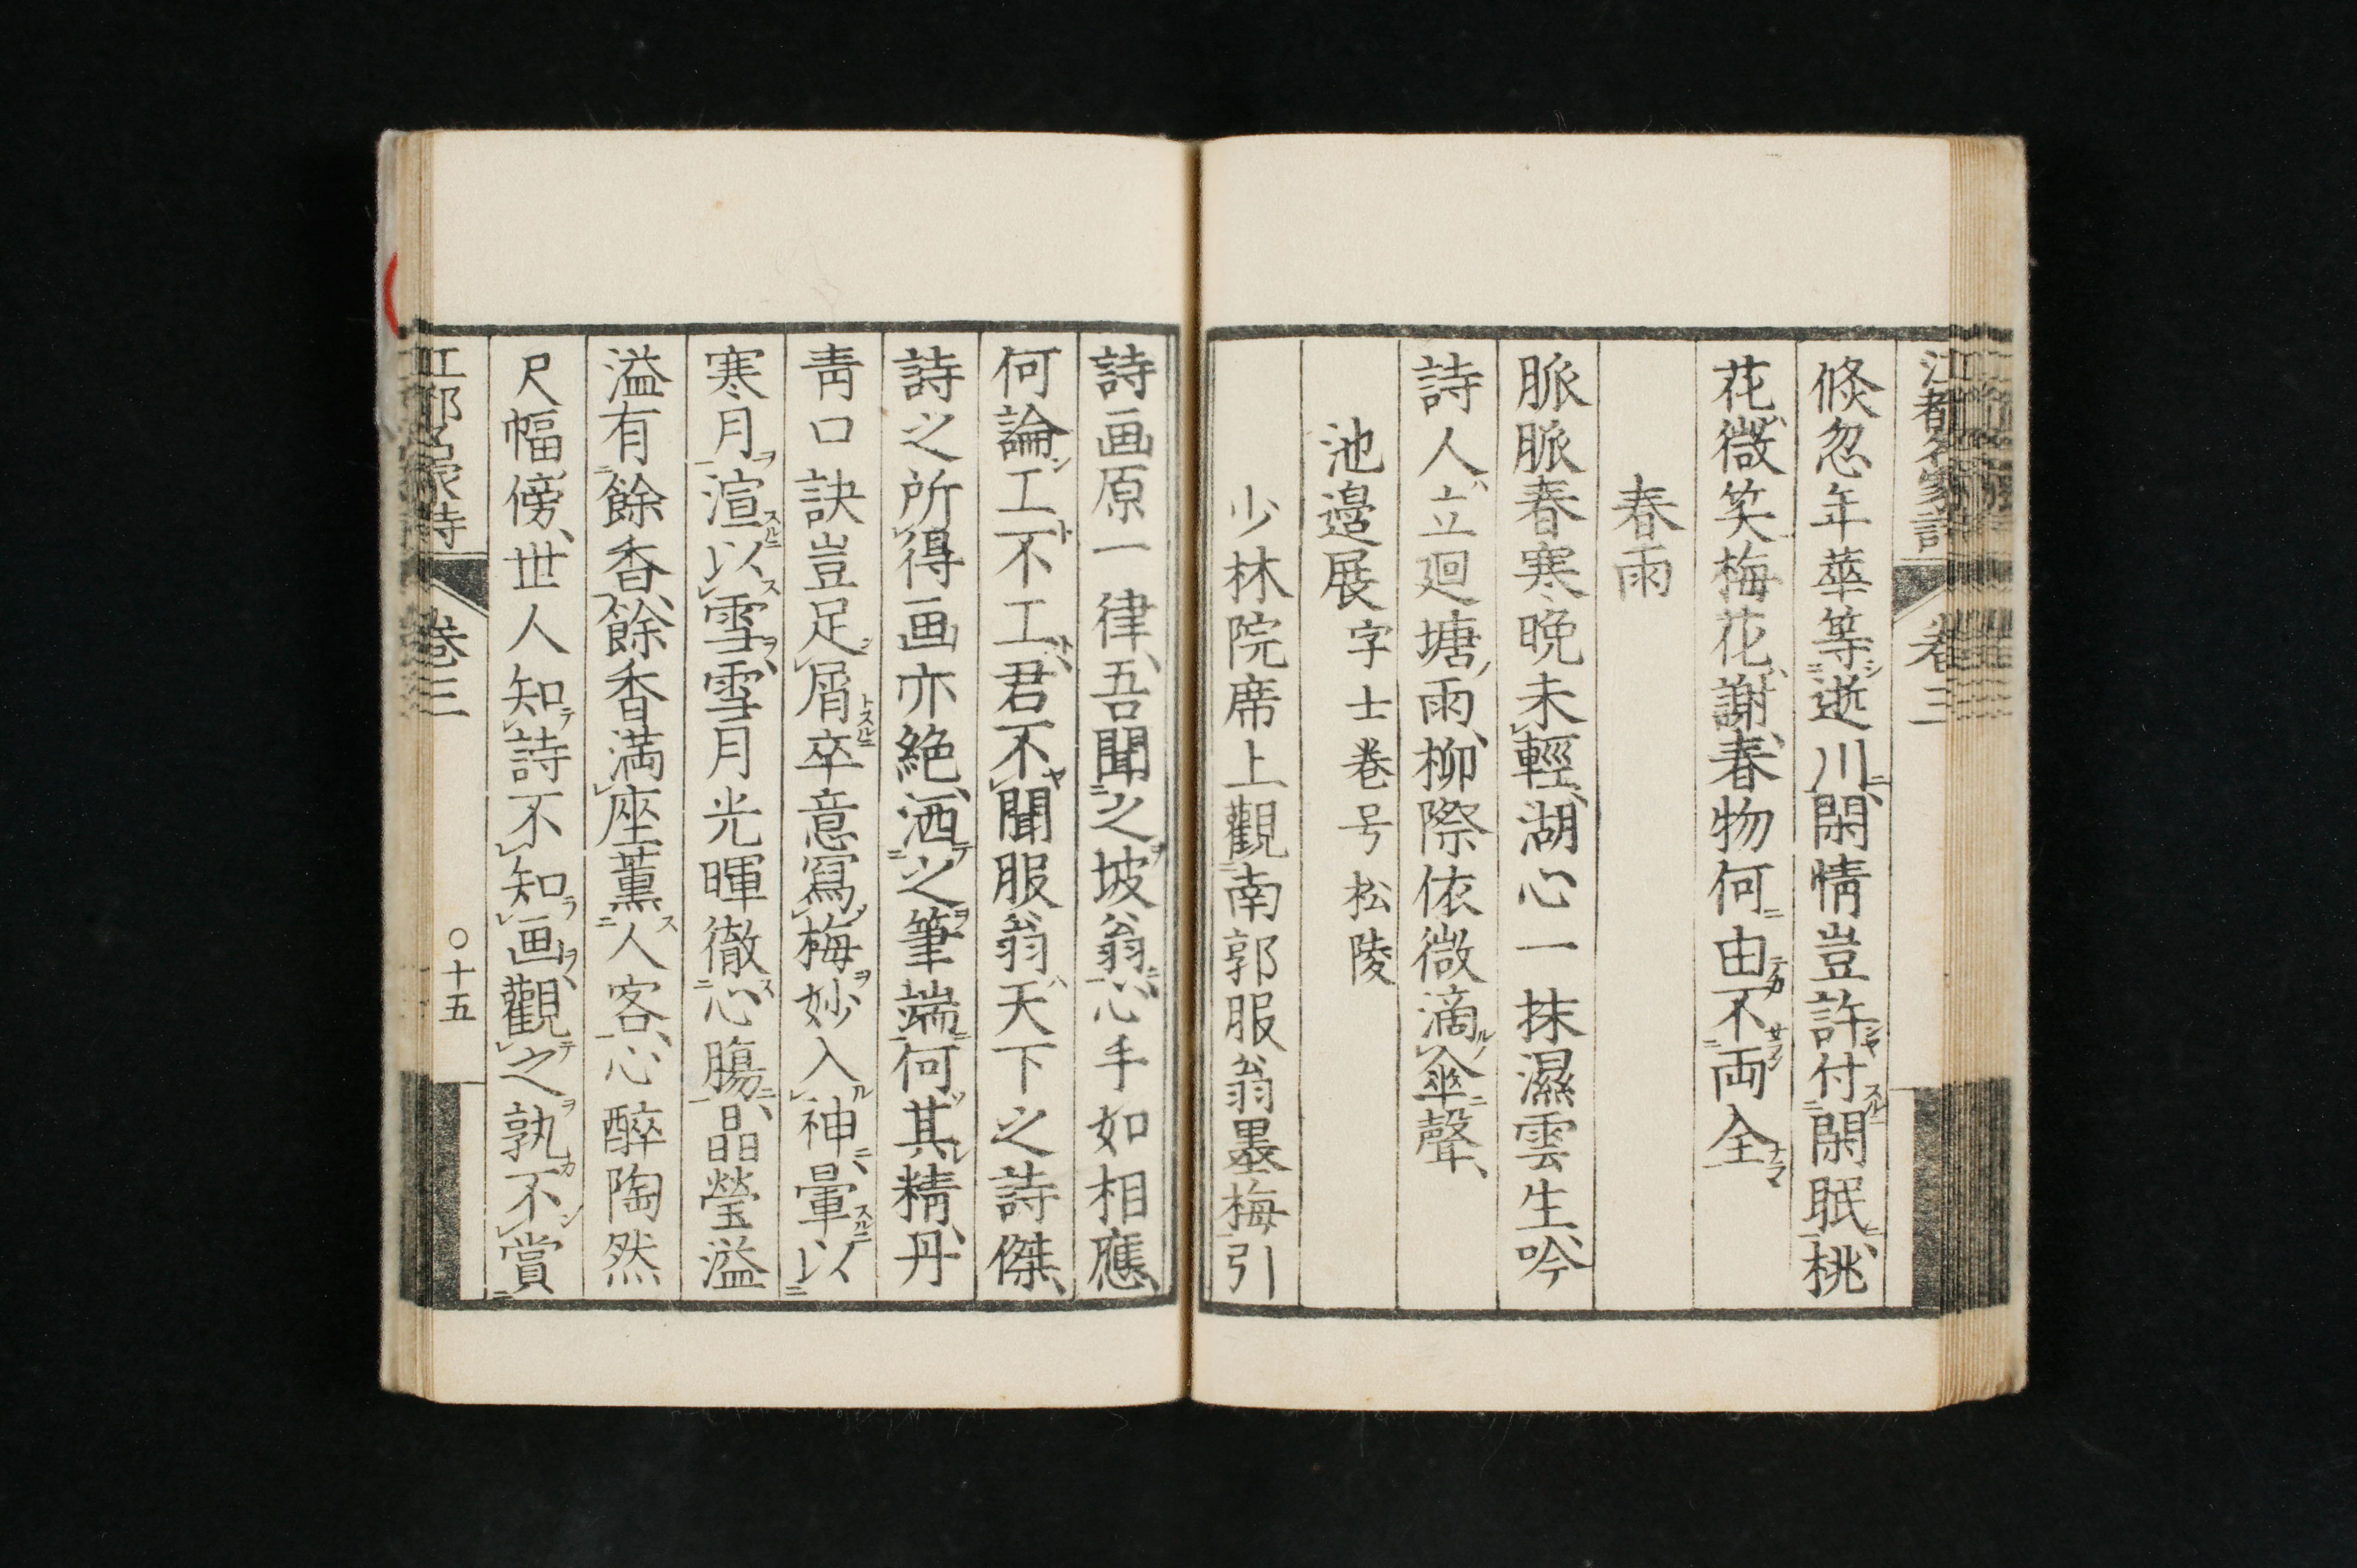 江都名家詩 卷三
倐忽年華等逝川閑情豈許付閑眠桃
花微笑梅花謝春物何由不両全
春雨
脈脈春寒晩未輕湖心一抹濕雲生吟
詩人立廻塘雨柳際依微滴傘聲
池邉展 字士巻号松陵
少林院席上觀南郭服翁墨梅引
詩画原一律吾聞之坡翁心手如相應
何論工不工君不聞服翁天下之詩傑
詩之所得画亦絶洒之筆端何其精丹
青口訣豈足屑卒意寫梅妙入神暈以
寒月渲以雪雪月光暉徹心膓晶瑩溢
溢有餘香餘香満座薫人客心醉陶然
尺幅傍世人知詩不知画觀之孰不賞
江都名家詩 卷三 〇十五